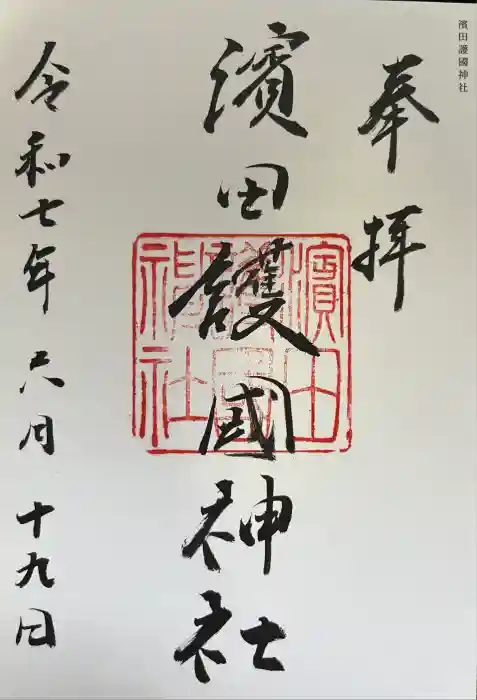 濱田護國神社
奉拝
濱田護國神社
濱田護國神社
令和七年 六月 十九日